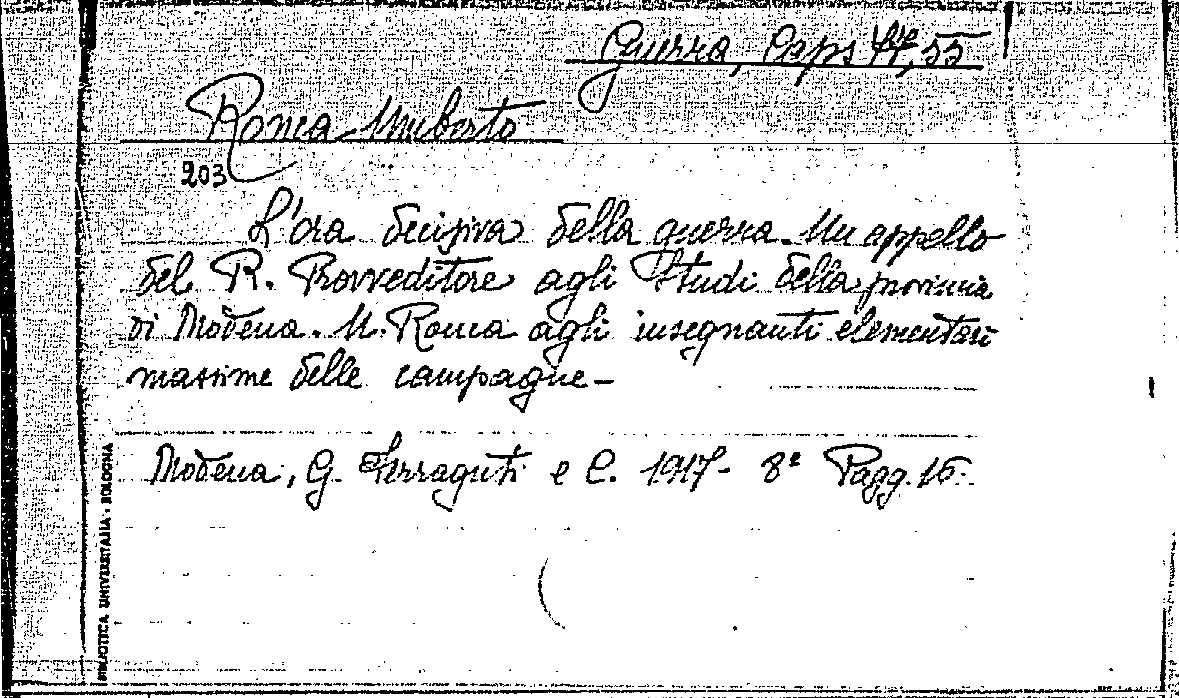 Guerra, Caps 47, 55
Ronca Umberto
203
L'ora decisiva della guerra. Un appello
del R. Provveditore agli Studi della provincia
di Modena. U. Ronca agli insegnanti elementari
massime delle campagne-
Modena, G. Ferraguti e C. 1917- 8° Pagg. 16.
BIBLIOTECA UNIVERSITARIA - BOLOGNA